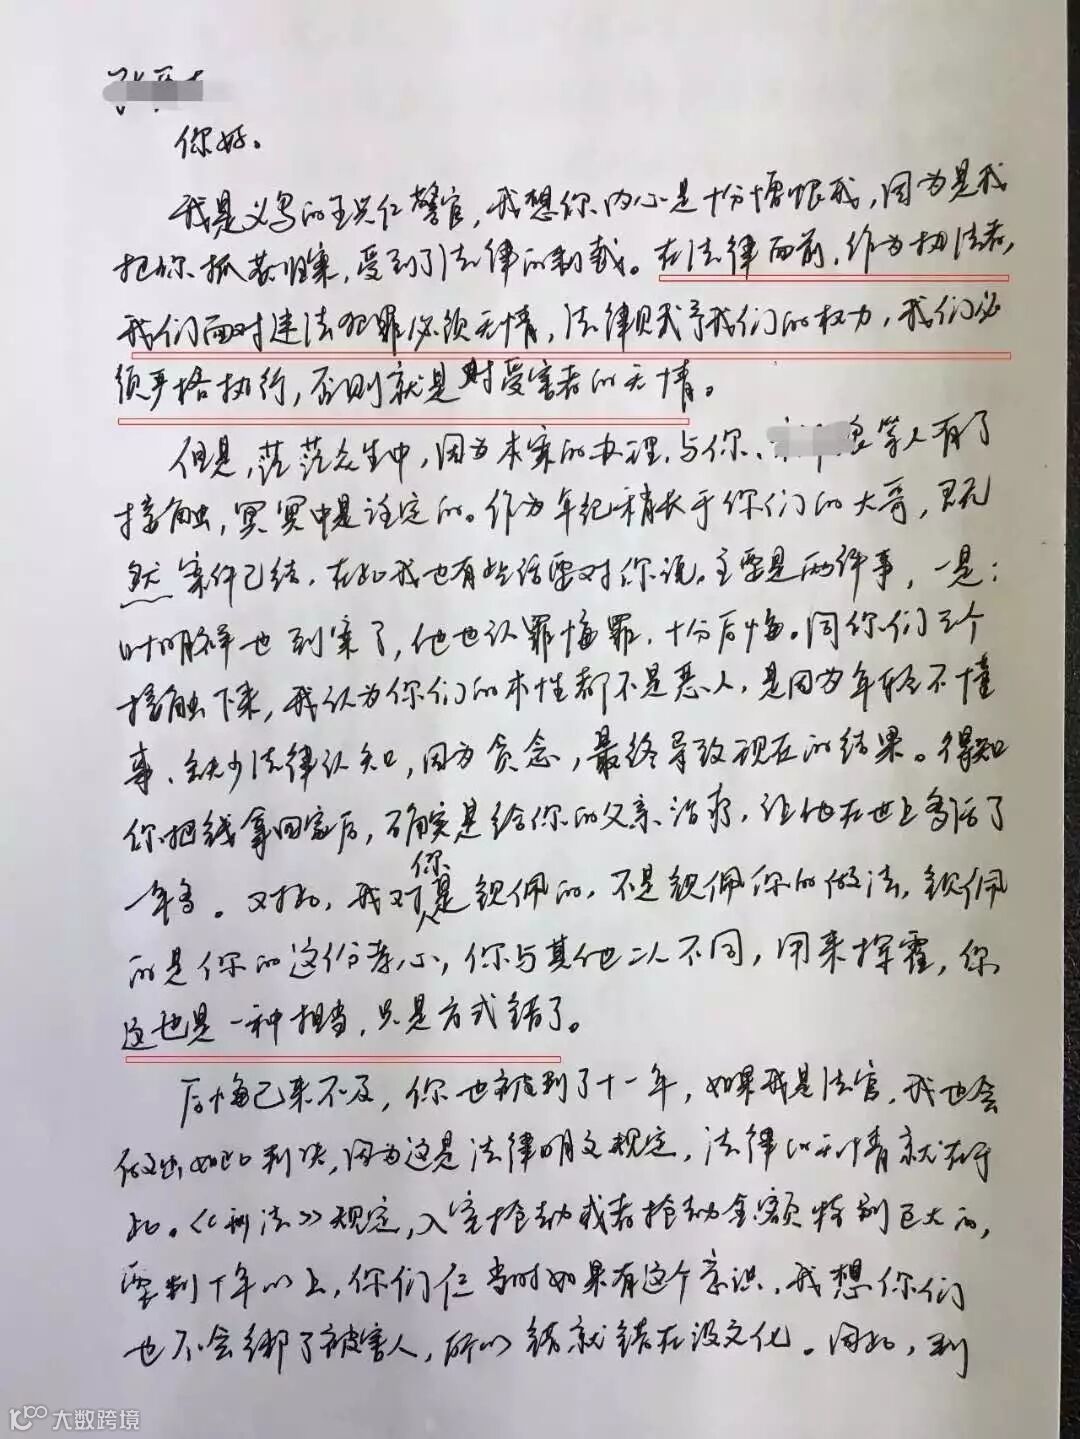 你好。
我是义乌的王兴仁警官，我想你内心是十分憎恨我，因为是我
把你抓获归案，受到了法律的制裁。在法律面前，作为执法者，
我们面对违法犯罪必须无情，法律赋予我们的权力，我们必
须严格执行，否则就是对受害者的无情。
但是，茫茫众生中，因为本案的办理，与你、等人有了
接触，冥冥中是注定的。作为年纪稍长于你们的大哥，既
然案件已结，在此我也有些话要对你说。主要是两件事，一是：
叶明祥也到案了，他也认罪悔罪，十分后悔。同你们三个
接触下来，我认为你们的本性都不是恶人，是因为年轻不懂
事、缺少法律认知，因为贪念，最终导致现在的结果。得知
你把钱拿回家后，确实是给你的父亲治疗，让他在世上多活了
一年多。对此，我对你是钦佩的，不是钦佩你的做法，钦佩
的是你的这份孝心，你与其他二人不同，用来挥霍，你
这也是一种担当，只是方式错了。
后悔已来不及，你也被判了十一年，如果我是法官，我也会
做出如此判决，因为这是法律明文规定，法律的无情就在于
此。《刑法》规定，入室抢劫或者抢劫金额特别巨大的，
要判十年以上，你们仨当时如果有这个意识，我想你们
也不会绑了被害人，所以错就错在没文化。因此，到
大数跨境